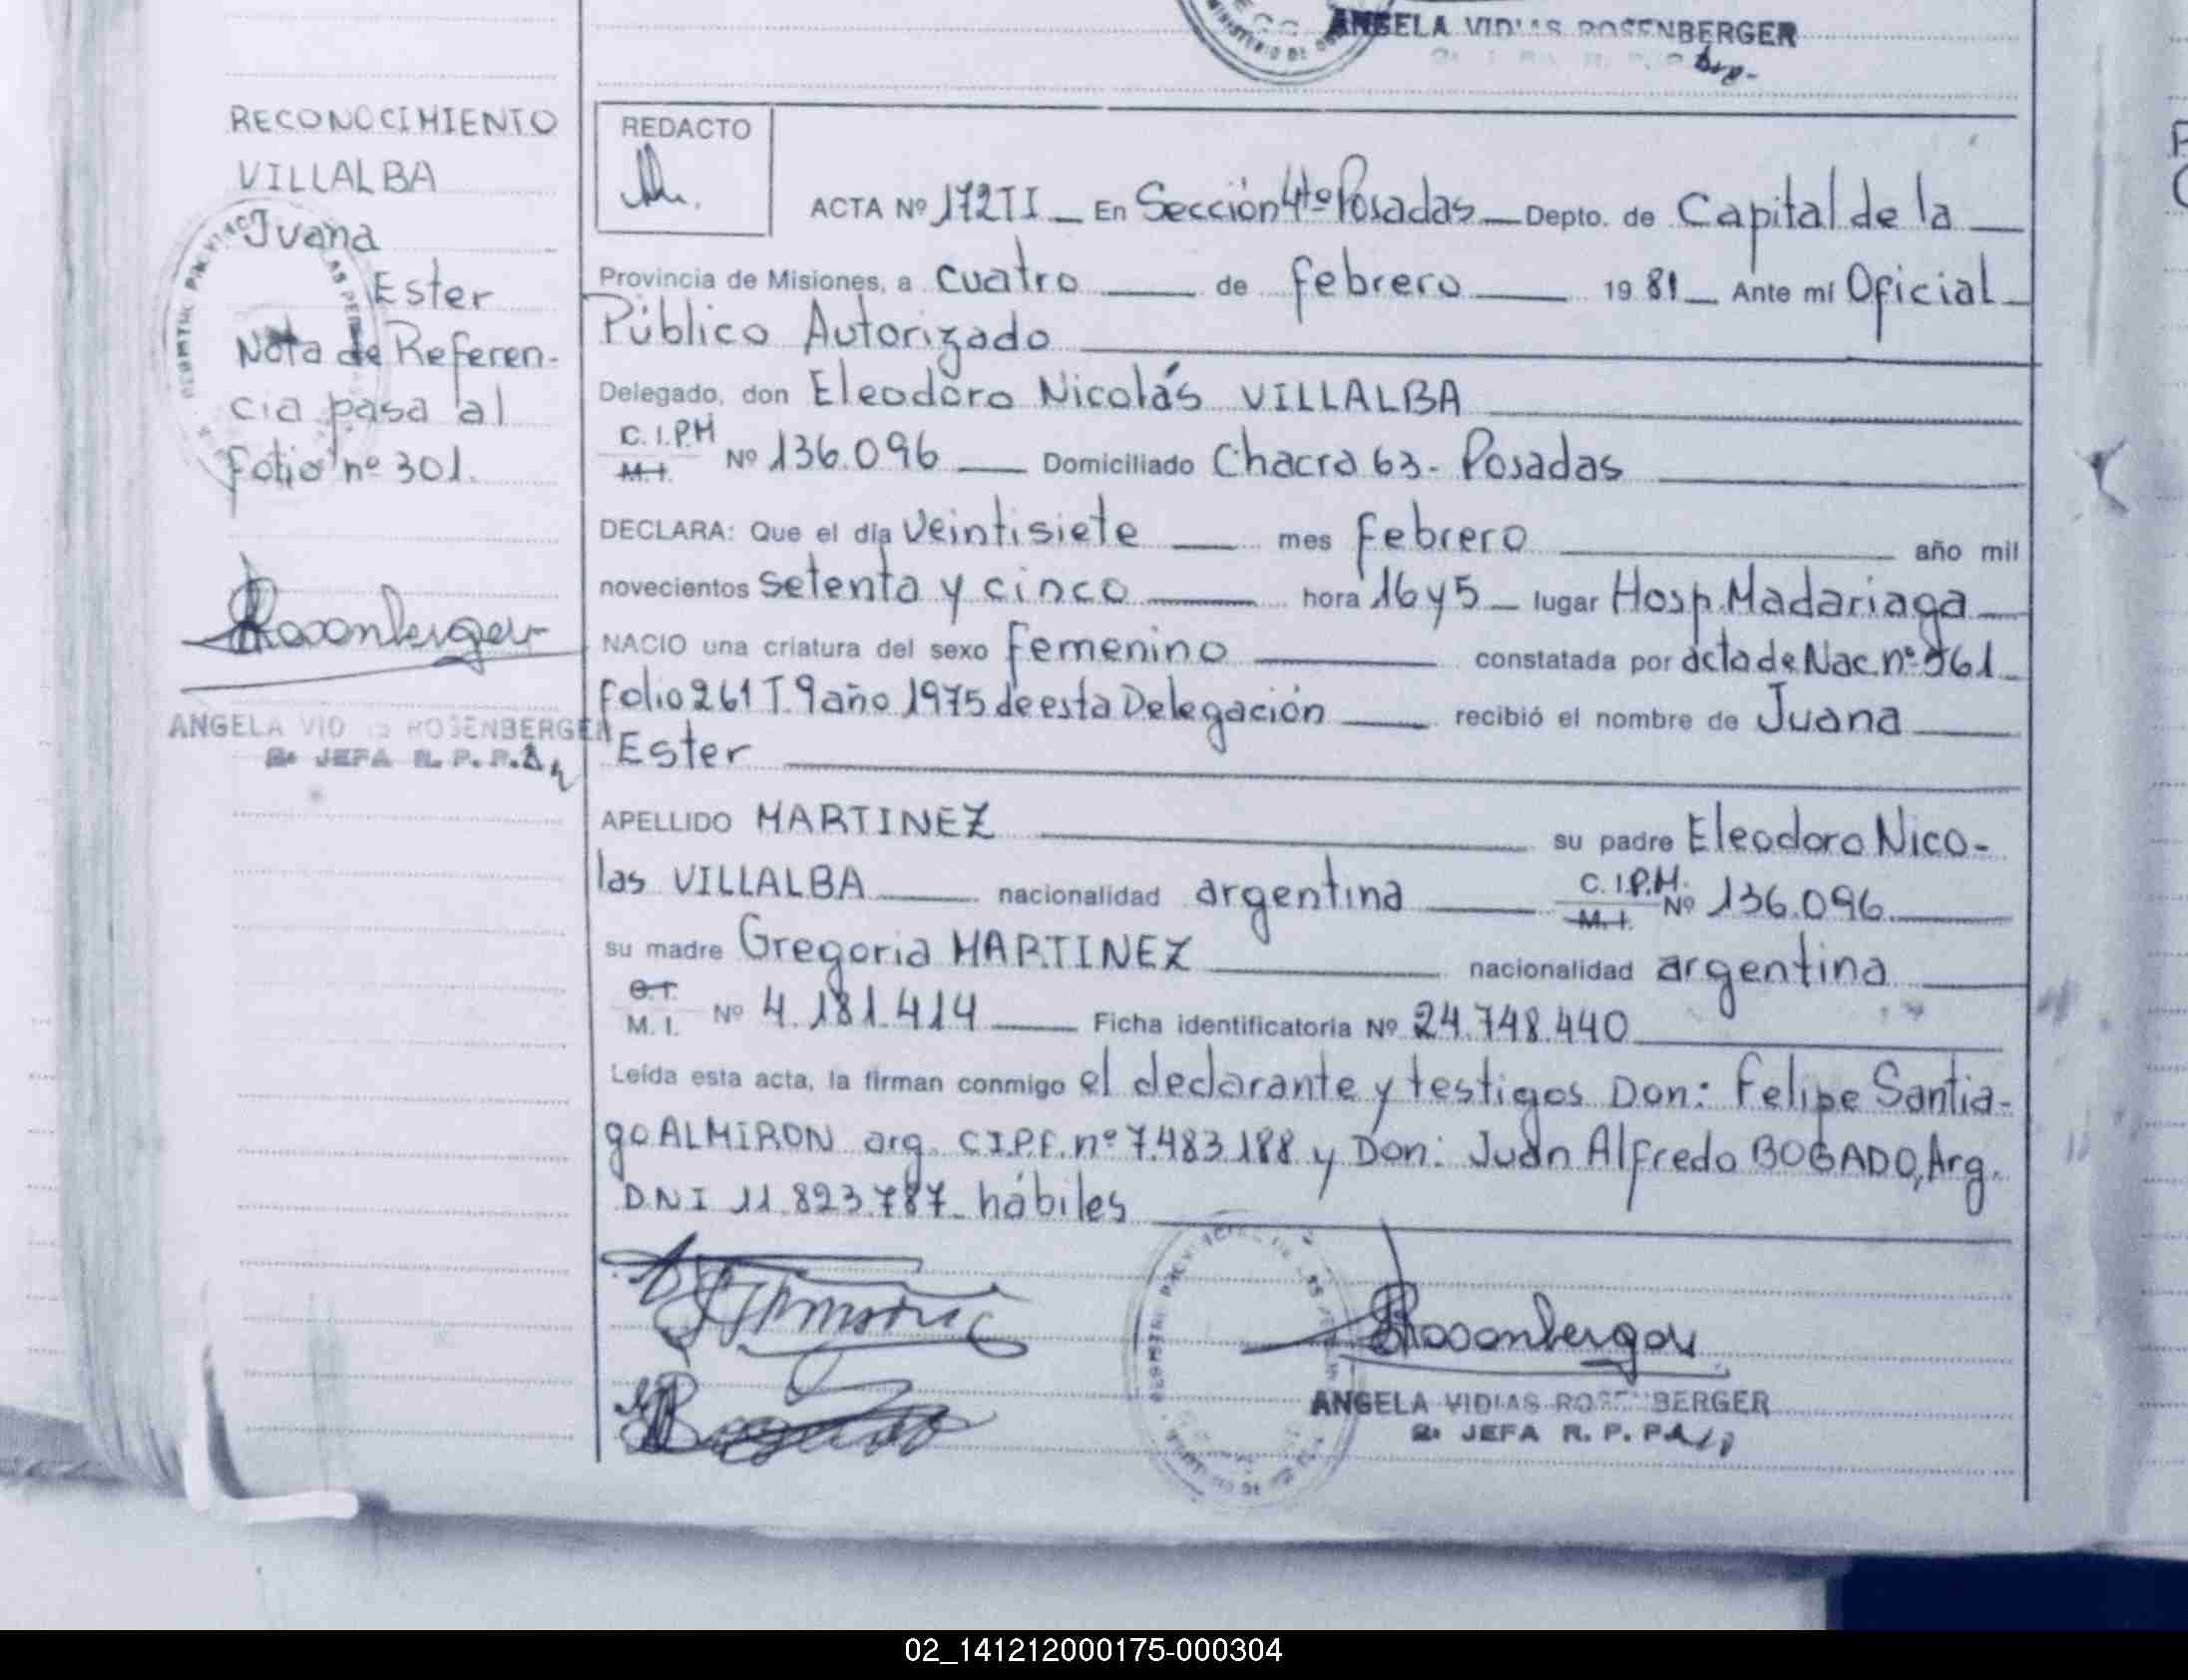 ANGELA VIDIAS ROSENBERGER
RECONOCIMIENTO
VILLALBA
Juana
Ester
Nota de Referen-
cia pasa al
Folio nº 301.
Rosenberger
ANGELA VID ROSENBERGER
2ª JEFA R. P. P.
REDACTO
ACTA Nº 172 TI En Sección 4tª Posadas Depto. de Capital de la
Provincia de Misiones, a cuatro de febrero 1981 Ante mí Oficial
Público Autorizado
Delegado, don Eleodoro Nicolás VILLALBA
C.I.P.M
M.I. Nº 136.096 Domiciliado Chacra 63- Posadas
DECLARA: Que el día Veintisiete mes Febrero año mil
novecientos setenta y cinco hora 16 y 5 lugar Hosp. Madariaga
NACIO una criatura del sexo Femenino constatada por acta de Nac. nº 561
Folio 261 T. 9 año 1975 de esta Delegación recibió el nombre de Juana
Ester
APELLIDO MARTINEZ su padre Eleodoro Nico-
las VILLALBA nacionalidad argentina C.I.P.M. M.I. Nº 136.096
su madre Gregoria MARTINEZ nacionalidad argentina
M. I. Nº 4.181.414 Ficha identificatoria Nº 24.748.440
Leída esta acta, la firman conmigo el declarante y testigos Don: Felipe Santia-
go ALMIRON arg. C.I.P.F. nº 7.483.188 y Don: Juan Alfredo BOGADO, Arg.
DNI 11.823.787 hábiles
Rosenberger
ANGELA VIDIAS ROSENBERGER
2ª JEFA R. P. P.
02_141212000175-000304